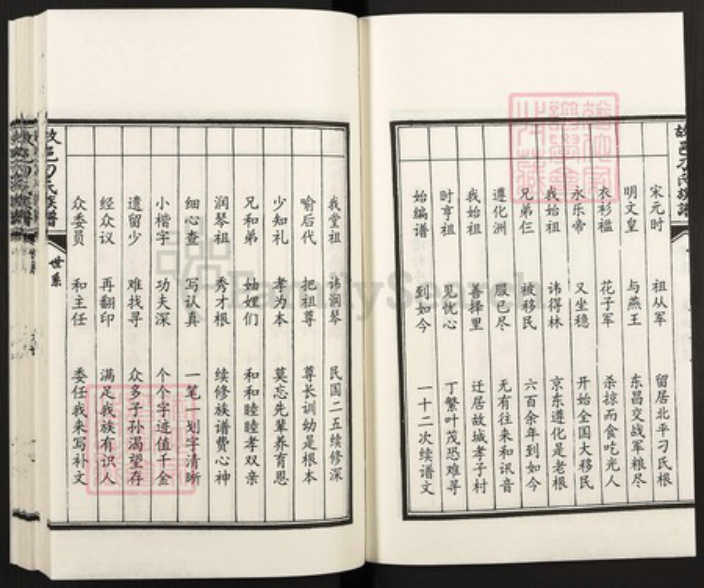 宋元时 祖从军 留居北平刁氏根
明文皇 与燕王 东昌交战军粮尽
衣衫褴 花子军 杀掠而食吃光人
永乐帝 又坐稳 开始全国大移民
我始祖 讳得林 京东遵化是老根
兄弟仨 被移民 六百余年到如今
遵化洲 服已尽 无有往来和讯音
我始祖 善择里 迁居故城孝子村
时亨祖 见忧心 丁繁叶茂恐难寻
始编谱 到如今 一十二次续谱文
我堂祖 讳润琴 民国二五续修深
喻后代 把祖尊 尊长训幼是根本
少知礼 孝为本 莫忘先辈养育恩
兄和弟 妯娌们 和和睦睦孝双亲
润琴祖 秀才根 续修族谱费心神
细心查 写认真 一笔一划字清晰
小楷字 功夫深 个个字迹值千金
遗留少 难找寻 众多子孙渴望存
经众议 再翻印 满足我族有识人
众委员 和主任 委任我来写补文
世系
故邑刁氏族谱
FamilySearch